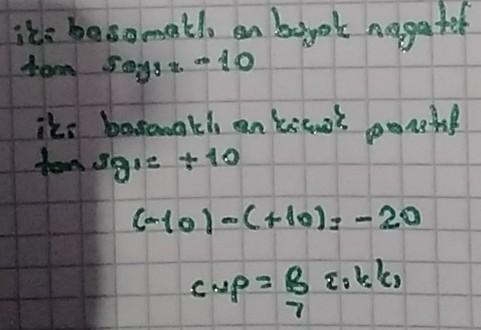 iki basamaklı en büyük negatif
tam sayı = -10
iki basamaklı en küçük pozitif
tam sayı = +10
(-10)-(+10)= -20
cvp = B